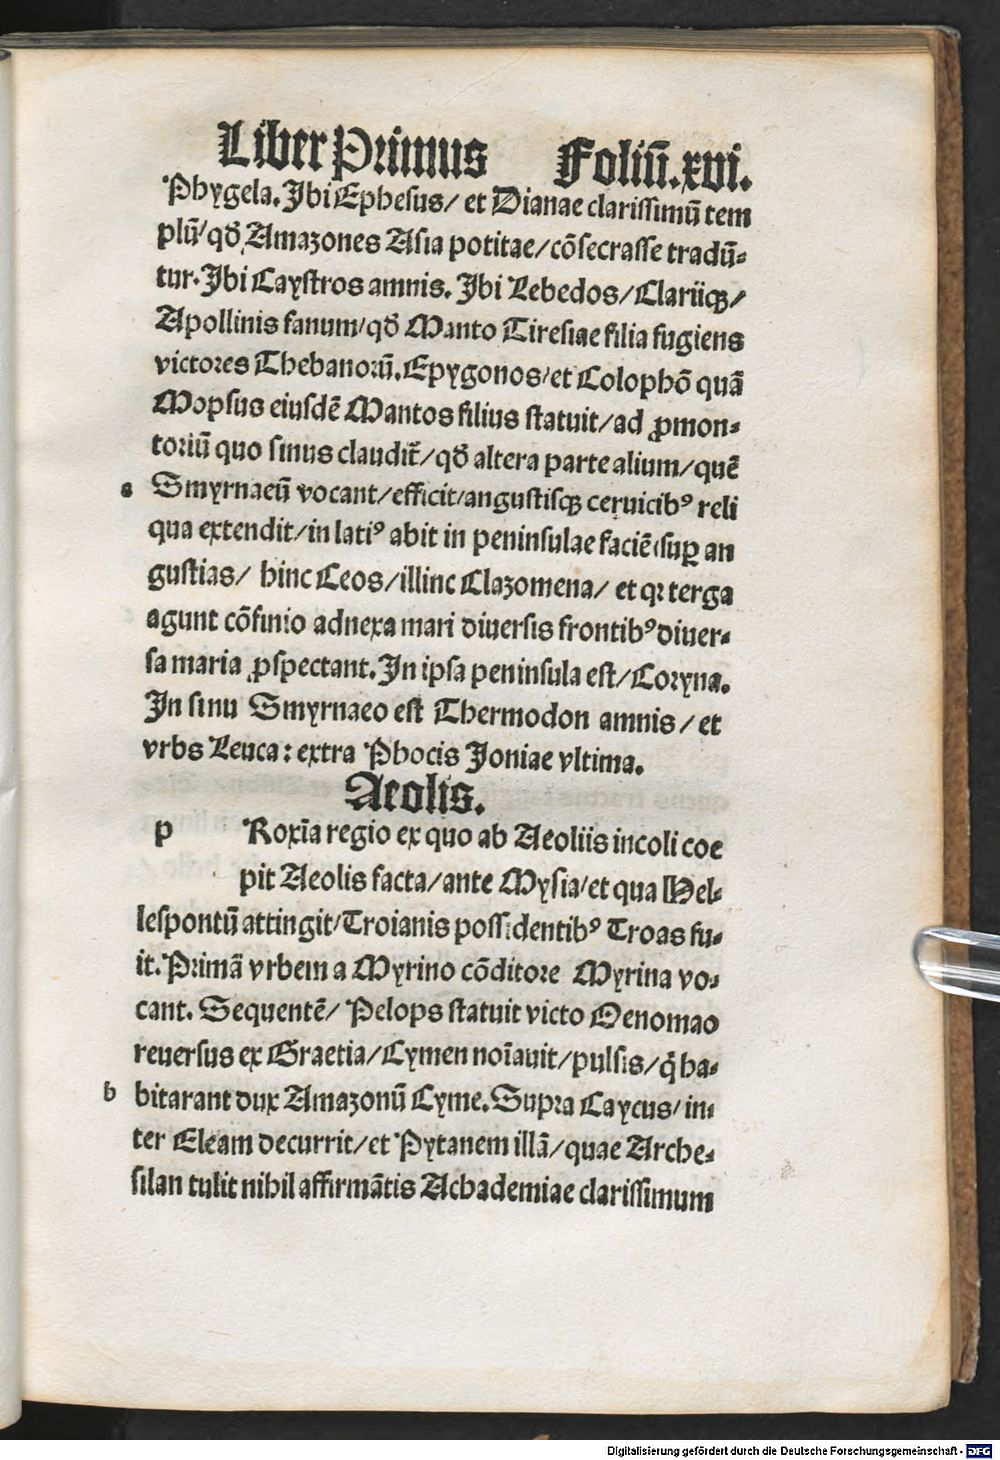 Liber Primus Foliũ.xvi.
Phygela. Ibi Ephesus/ et Dianae clarissimũ tem
plũ/ qđ Amazones Asia potitae/ cõsecrasse tradũ⸗
tur. Ibi Caystros amnis. Ibi Lebedos/ Clariiqꝫ/
Apollinis fanum/ qđ Manto Tiresiae filia fugiens
victores Thebanorũ. Epygonos/ et Colophõ quã
Mopsus eiusdẽ Mantos filius statuit/ ad ꝓmon⸗
toriũ quo sinus claudit̃/ qđ altera parte alium/ quẽ
a Smyrnaeũ vocant/ efficit/ angustisqꝫ ceruicibꝰ reli
qua extendit/ in latiꝰ abit in peninsulae faciẽ/ suꝑ an
gustias/ hinc Ceos/ illinc Clazomena/ et qꝛ terga
agunt cõfinio adnexa mari diuersis frontibꝰ diuer⸗
sa maria ꝓspectant. In ipsa peninsula est/ Coryna.
In sinu Smyrnaeo est Thermodon amnis/ et
vrbs Leuca: extra Phocis Ioniae vltima.
Aeolis.
p Roxĩa regio ex quo ab Aeoliis incoli coe
pit Aeolis facta/ ante Mysia/ et qua Hel⸗
lespontũ attingit/ Troianis possidentibꝰ Troas fu⸗
it. Primã vrbem a Myrino cõditore Myrina vo⸗
cant. Sequentẽ/ Pelops statuit victo Oenomao
reuersus ex Graetia/ Cymen noĩauit/ pulsis/ q̃ ha⸗
b bitarant dux Amazonũ Cyme. Supra Caycus/ in⸗
ter Eleam decurrit/ et Pytanem illã/ quae Arche⸗
silan tulit nihil affirmãtis Achademiae clarissimum
Digitalisierung gefördert durch die Deutsche Forschungsgemeinschaft - DFG